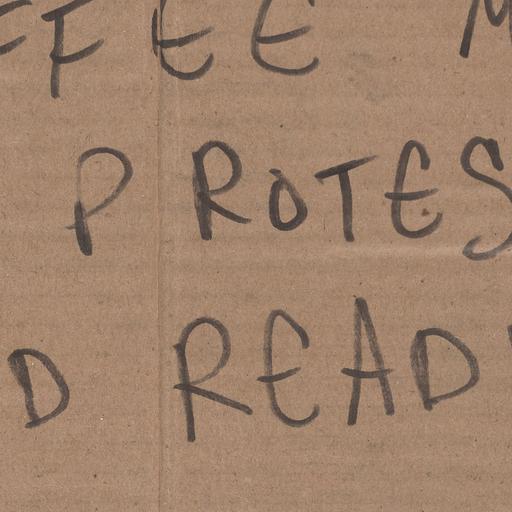 FFEE M
PROTES
D READ